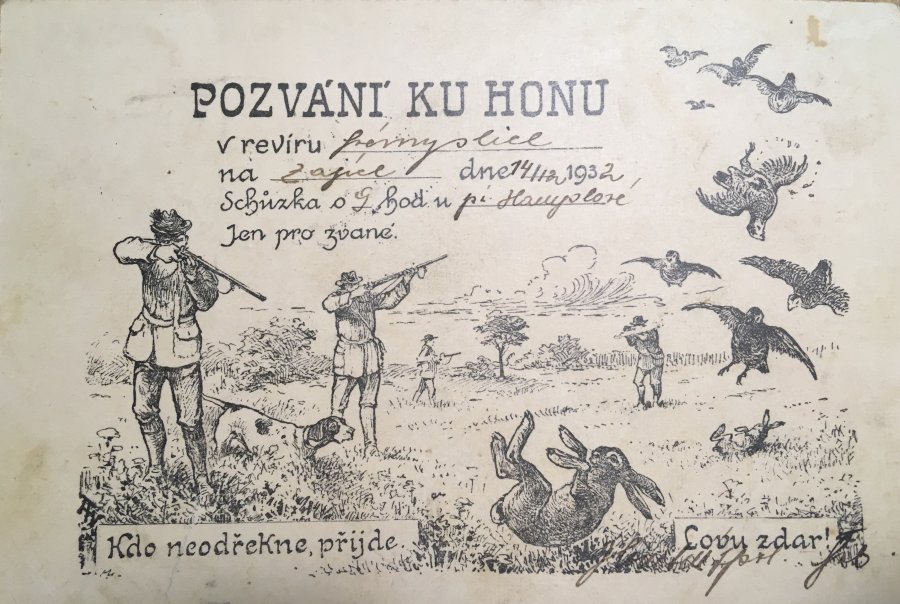 POZVÁNÍ KU HONU
v revíru
na zajíce dne 14/12 1932
Schůzka o 9 hod u pí Hamplové
Jen pro zvané.
Kdo neodřekne, přijde.
Lovu zdar!